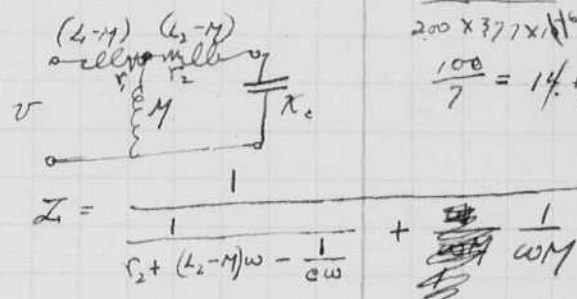 (L₁-M) (L₂-M)
r₁ r₂
v M X_c
200 × 377 × 10
100/7 = 14.
Z = 1/(1/(r₂ + (L₂-M)ω - 1/cω) + 1/ωM)